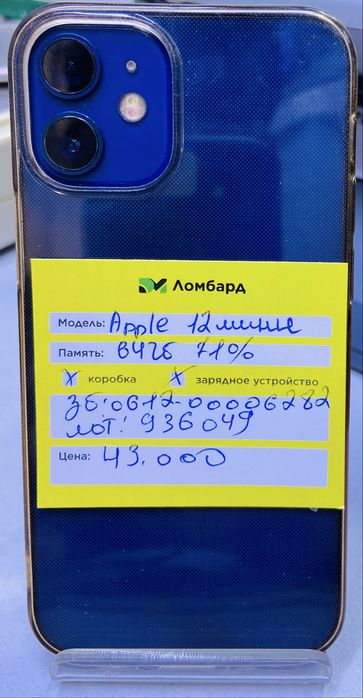 Ломбард
Модель: Apple 12 мини
Память: 64Гб 71%
X коробка X зарядное устройство
ЗБ: 0612-00006282
лот: 936049
Цена: 43.000